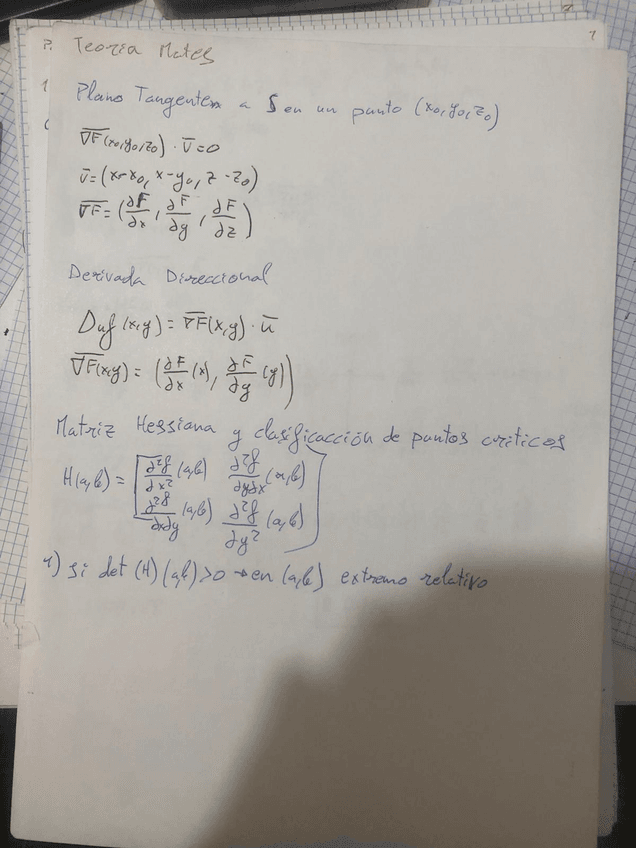 Teoría Mates
Plano Tangente a S en un punto (x₀,y₀,z₀)
∇F(x₀,y₀,z₀) · ū = 0
ū = (x-x₀, x-y₀, z-z₀)
∇F = (∂F/∂x, ∂F/∂y, ∂F/∂z)
Derivada Direccional
Duf(x,y) = ∇F(x,y) · ū
∇F(x,y) = (∂F/∂x (x), ∂F/∂y (y))
Matriz Hessiana y clasificacción de puntos criticos
H(a,b) = [∂²f/∂x² (a,b) ∂²f/∂y∂x (a,b)
∂²f/∂x∂y (a,b) ∂²f/∂y² (a,b)]
1) si det (H) (a,b) >0 → en (a,b) extremo relativo